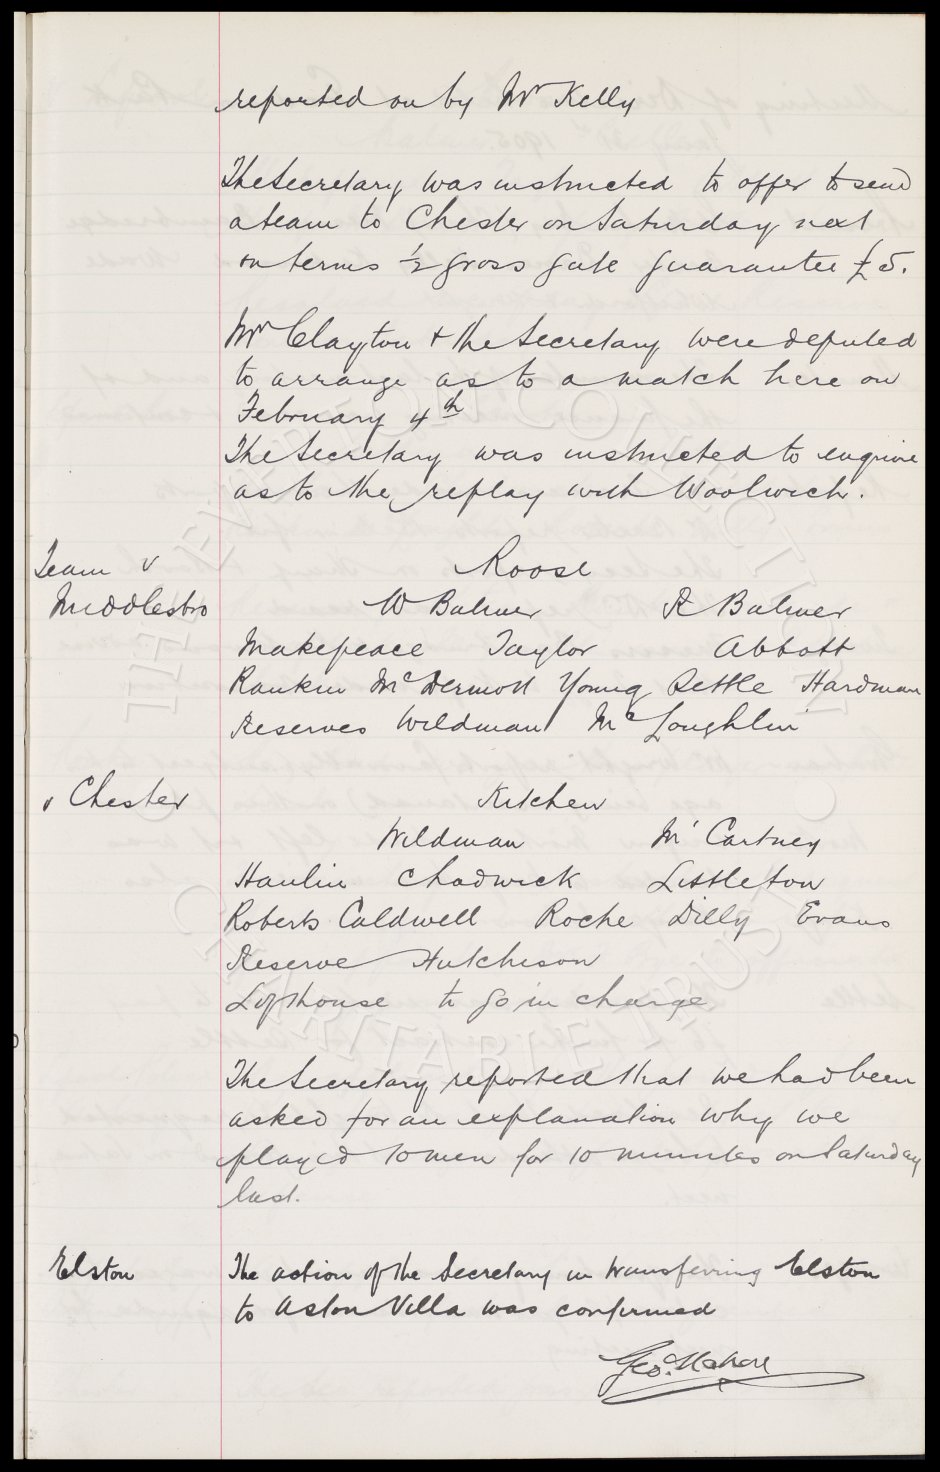 reported on by Mr Kelly
The Secretary was instructed to offer to send
a team to Chester on Saturday next
on terms ½ gross gate guarantee £5.
Mr Clayton + the Secretary were deputed
to arrange as to a match here on
February 4th
The Secretary was instructed to enquire
as to the replay with Woolwich.
Team v Roose
Middlesbro W Balmer R Balmer
Makepeace Taylor Abbott
Rankin McDermott Young Settle Hardman
Reserves Wildman McLoughlin
v Chester Kitchen
Wildman McCartney
Hanlin Chadwick Littleton
Roberts Caldwell Roche Dilly Evans
Reserve Hutcheson
Lofthouse to go in charge
The Secretary reported that we had been
asked for an explanation why we
played 10 men for 10 minutes on Saturday
last.
Elston The action of the Secretary in transferring Elston
to Aston Villa was confirmed
Geo. Mahon
THE EVERTON COLLECTION
CHARITABLE TRUST